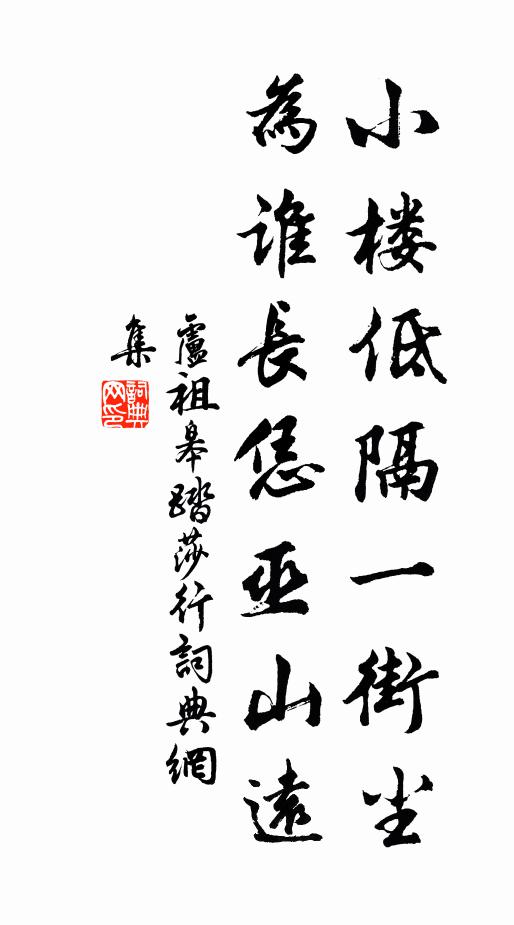 小楼低隔一街尘
為誰長恁巫山遠
盧祖皋踏莎行詞典網
集
詞典網印